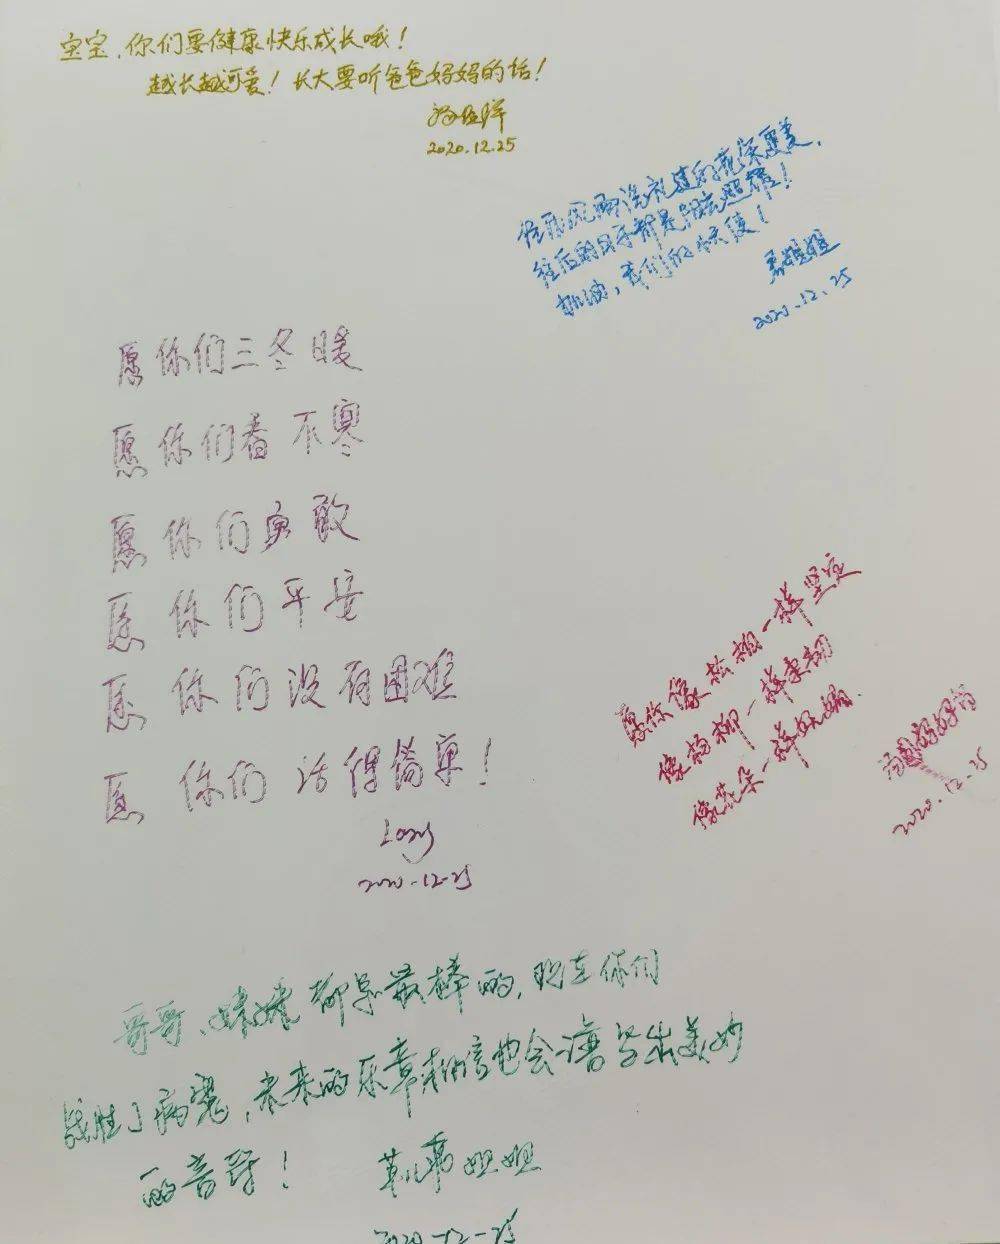 宝宝，你们要健康快乐成长哦！
越长越可爱！长大要听爸爸妈妈的话！
2020.12.25
经历风雨洗礼过的花朵更美，
往后的日子都是阳光照耀！
加油，我们的小天使！
姐姐
2020.12.25
愿你们三冬暖
愿你们春不寒
愿你们勇敢
愿你们平安
愿你们没有困难
愿你们活得简单！
2020.12.25
愿你像松柏一样坚定
像杨柳一样柔韧
像花朵一样妩媚.
妈妈
2020.12.25
哥哥、妹妹都是最棒的，现在你们
战胜了病魔，未来的乐章相信也会谱写出美妙
的音符！
姐姐
2020-12-25